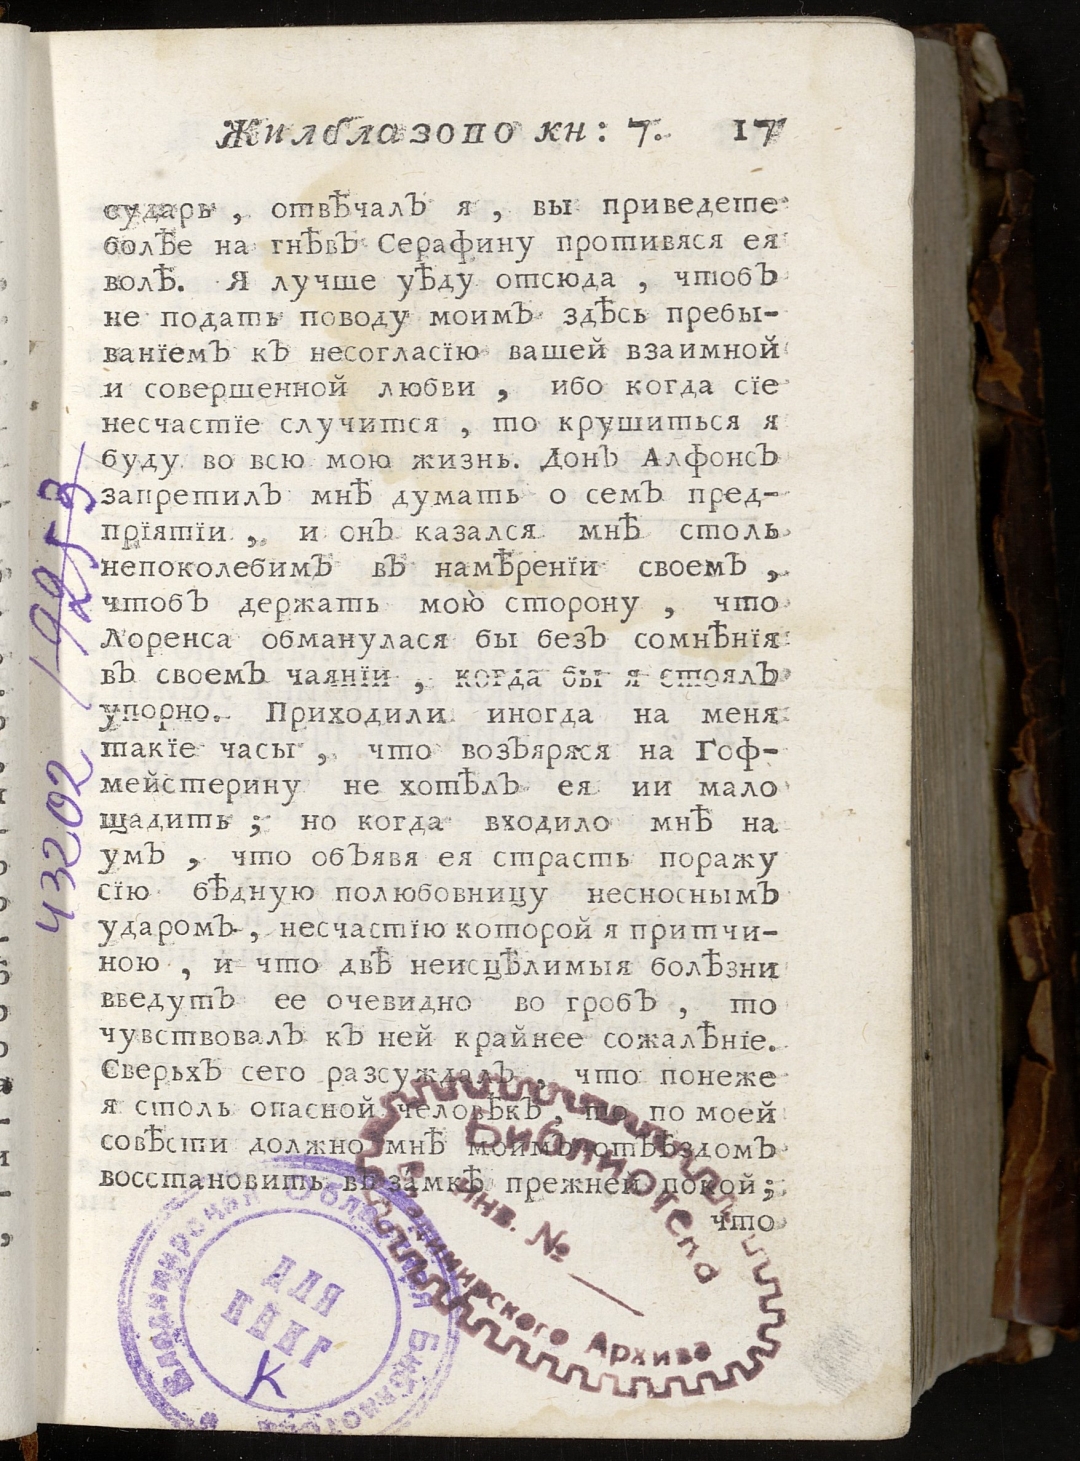 Жилблазопо кн: 7. 17
сударь, отвѣчалЪ я, вы приведете
болѣе на гнѣвЪ Серафину противяся ея
волѣ. Я лучше уѣду отсюда, чтобЪ
не подать поводу моимЪ здѣсь пребы-
ванїемЪ кЪ несогласїю вашей взаимной
и совершенной любви, ибо когда сїе
несчастїе случится, то крушиться я
буду во всю мою жизнь. ДонЪ АлфонсЪ
запретилЪ мнѣ думать о семЪ пред-
прїятїи, и онЪ казался мнѣ столь
непоколебимЪ вЪ намѣренїи своемЪ,
чтобЪ держать мою сторону, что
Лоренса обманулася бы безЪ сомнѣнїя
вЪ своемЪ чаянїи, когда бы я стоялЪ
упорно. Приходили иногда на меня
такїе часы, что возЪяряся на Гоф-
мейстерину не хотѣлЪ ея ни мало
щадить; но когда входило мнѣ на
умЪ, что обЪявя ея страсть поражу
сїю бѣдную полюбовницу несноснымЪ
ударомЪ, несчастїю которой я притчи-
ною, и что двѣ неисцѣлимыя болѣзни
введутЪ ее очевидно во гробЪ, то
чувствовалЪ кЪ ней крайнее сожалѣнїе.
СверьхЪ сего разсуждалЪ, что понеже
я столь опасной человѣкЪ, то по моей
совѣсти должно мнѣ моимЪ отЪѣздомЪ
восстановить вЪ замкѣ прежней покой;
что
43202 19253
Библиотека
Инв. №
Владимирского Архива
Владимирская Областная Библиотека
ДЛЯ
КНИГ
К